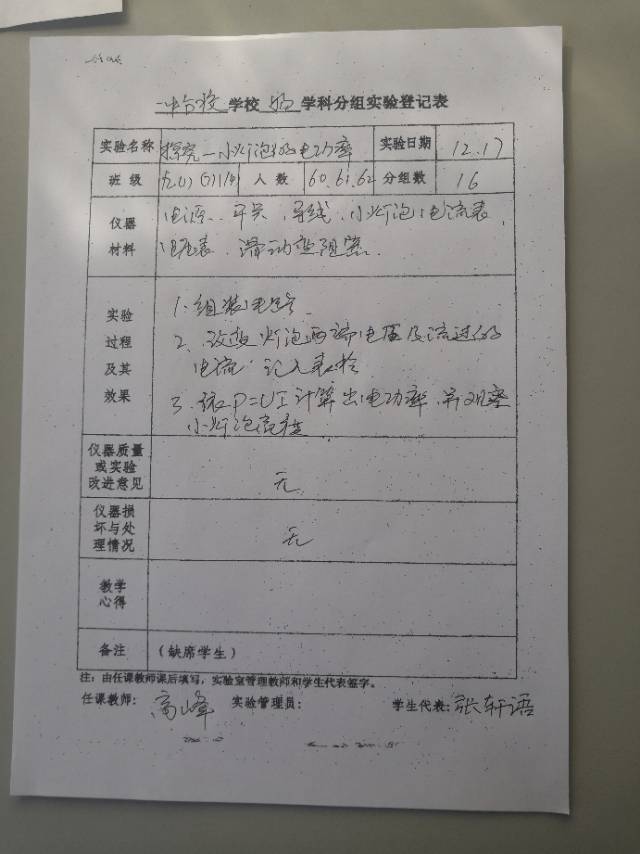 学校 物 学科分组实验登记表
实验名称 探究小灯泡的电功率 实验日期 12.17
班级 人数 60.61.62 分组数 16
仪器材料 电源、开关、导线、小灯泡、电流表、
电压表、滑动变阻器.
实验过程及其效果
1、组装电路.
2、改变灯泡两端电压及流过的
电流,记入表格
3、P=UI计算出电功率,并观察
小灯泡亮度
仪器质量或实验改进意见 无
仪器损坏与处理情况 无
教学心得
备注 (缺席学生)
注:由任课教师课后填写,实验室管理教师和学生代表签字。
任课教师: 高峰 实验管理员: 学生代表: 张轩语